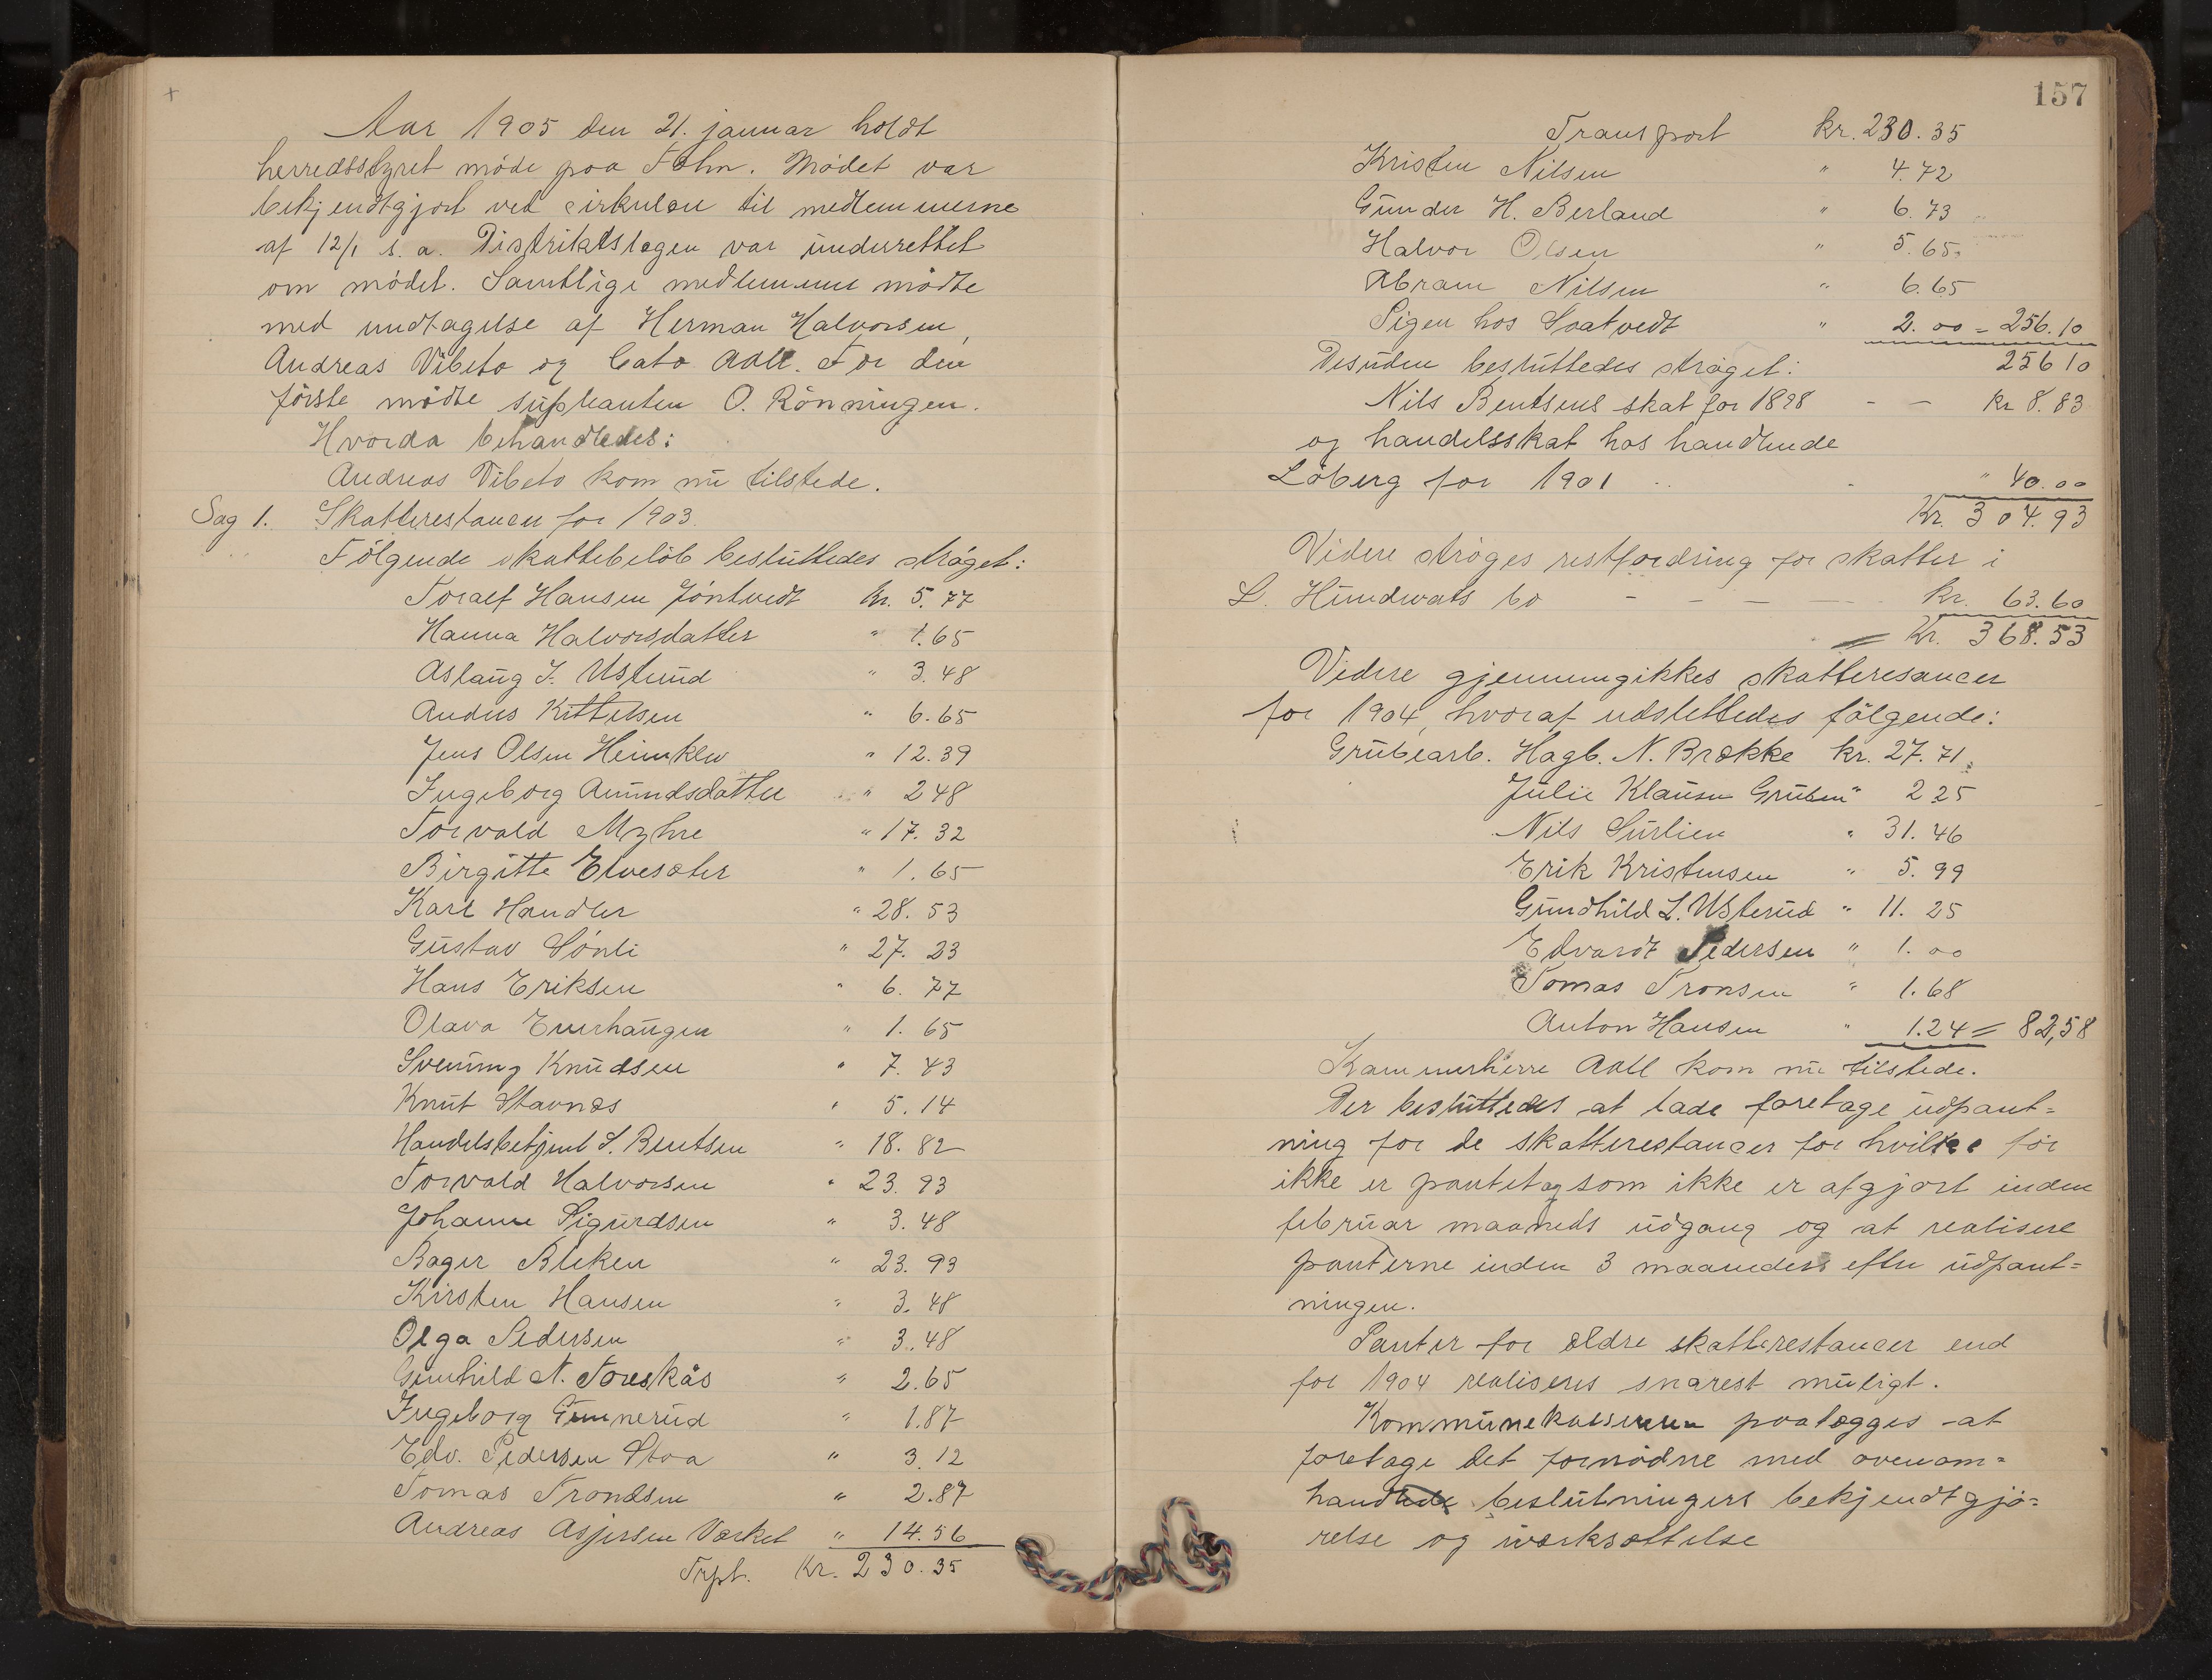 Aar 1905 den 21. januar holdt
herredsstyret møde paa Fehn. Mødet var
bekjendtgjort ved cirkulære til medlemmerne
af 12/1 s. a. Distriktslægen var underrettet
om mødet. Samtlige medlemmer mødte
med undtagelse af Herman Halvorsen,
Andreas Vibeto og Cato Aall. For den
første mødte suppleanten O. Rönningen.
Hvorda behandledes:
Andreas Vibeto kom nu tilstede.
Sag 1. Skatterestancer for 1903.
Følgende skattebeløb besluttedes strøget:
Toralf Hansen Jöntvedt kr. 5.77
Hanna Halvorsdatter " 1.65
Aslaug J. Ustund " 3.48
Anders Kittelsen " 6.65
Jens Olsen Heimklev " 12.39
Ingeborg Amundsdatter " 2 48
Torvald Myhre " 17.32
Birgitte Elvesæter " 1.65
Karl Handler " 28.53
Gustav Sönli " 27.23
Hans Eriksen " 6.77
Olava Everhaugen " 1.65
Svenung Knudsen " 7.43
Knut Stavnæs " 5.14
Handelsbetjent S. Bentsen " 18.82
Torvald Halvorsen " 23.93
Johanne Sigurdsen " 3.48
Bager Bleken " 23.93
Kirsten Hansen " 3.48
Olga Pedersen " 3.48
Gunhild N. Toreskås " 2.65
Ingeborg Gunnerud " 1.87
Edv. Pedersen Stoa " 3.12
Tomas Trondsen " 2.87
Andreas Asjersen Værket " 14.56
Trpt. Kr. 230.35
157
Transport kr. 230.35
Kristen Nilsen " 4.72
Gunder H. Berland " 6.73
Halvor Olsen " 5.65
Abram Nilsen " 6.65
Pigen hos Svatvedt " 2.00 = 256.10
256 10
Desuden besluttedes strøget:
Nils Bentsens skat for 1898 - - Kr 8.83
og handelsskat hos handlende
Löberg for 1901 " 40.00
Kr. 304.93
Videre strøges restfordring for skatter i
L. Hundwats bo - - - - Kr. 63.60
= Kr. 368.53
Videre gjennemgikkes skatteresancer
for 1904, hvoraf udslettedes følgende:
Grubearb. Hagb. N. Brække kr. 27.71
Julie Klausen Gruben " 2 25
Nils Surlien " 31.46
Erik Kristensen " 5.99
Gundhild L. Usterud " 11.25
Edvardt Pedersen " 1.00
Tomas Tronsen " 1.68
Anton Hansen " 1.24 = 82,58
Kammerherre Aall kom nu tilstede.
Der besluttedes at lade foretage udpant=
ning for de skatterestancer for hvilke før
ikke er pantet og som ikke er afgjort inden
februar maaneds udgang og at realisere
panterne inden 3 maaneder efter udpant=
ningen.
Panter for ældre skatterestancer end
for 1904 realiseres snarest muligt.
Kommunekasseren paalægges at
foretage det fornødne med ovenom=
handlede beslutningers bekjendtgjø=
relse og iværksættelse